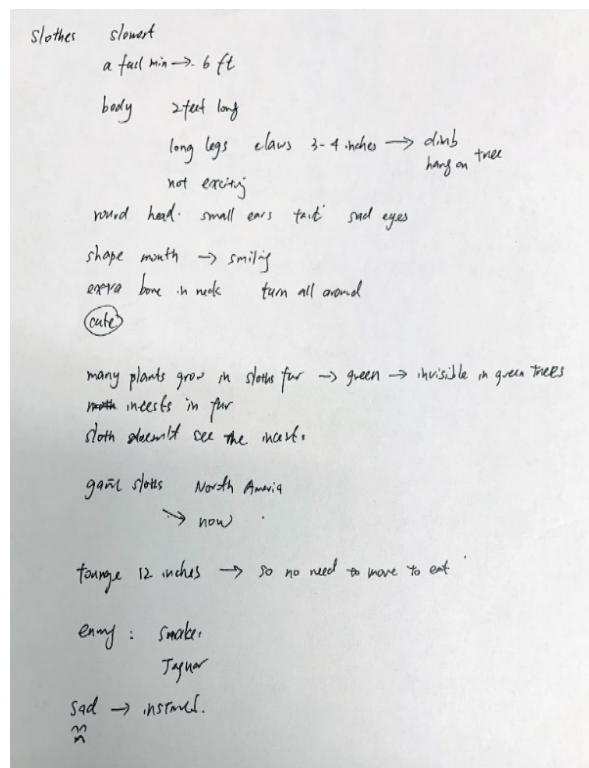 Slothes slowest
a full min → 6 ft
body 2 feet long
long legs claws 3-4 inches → climb
hang on tree
not exciting
round head. small ears tail sad eyes
shape mouth → smiling
extra bone in neck turn all around
cute
many plants grow in sloths fur → green → invisible in green trees
insests in fur
sloth doesn't see the incest.
sloths North America
→ now
tounge 12 inches → so no need to move to eat
enmy : snake.
Jaguar
sad →